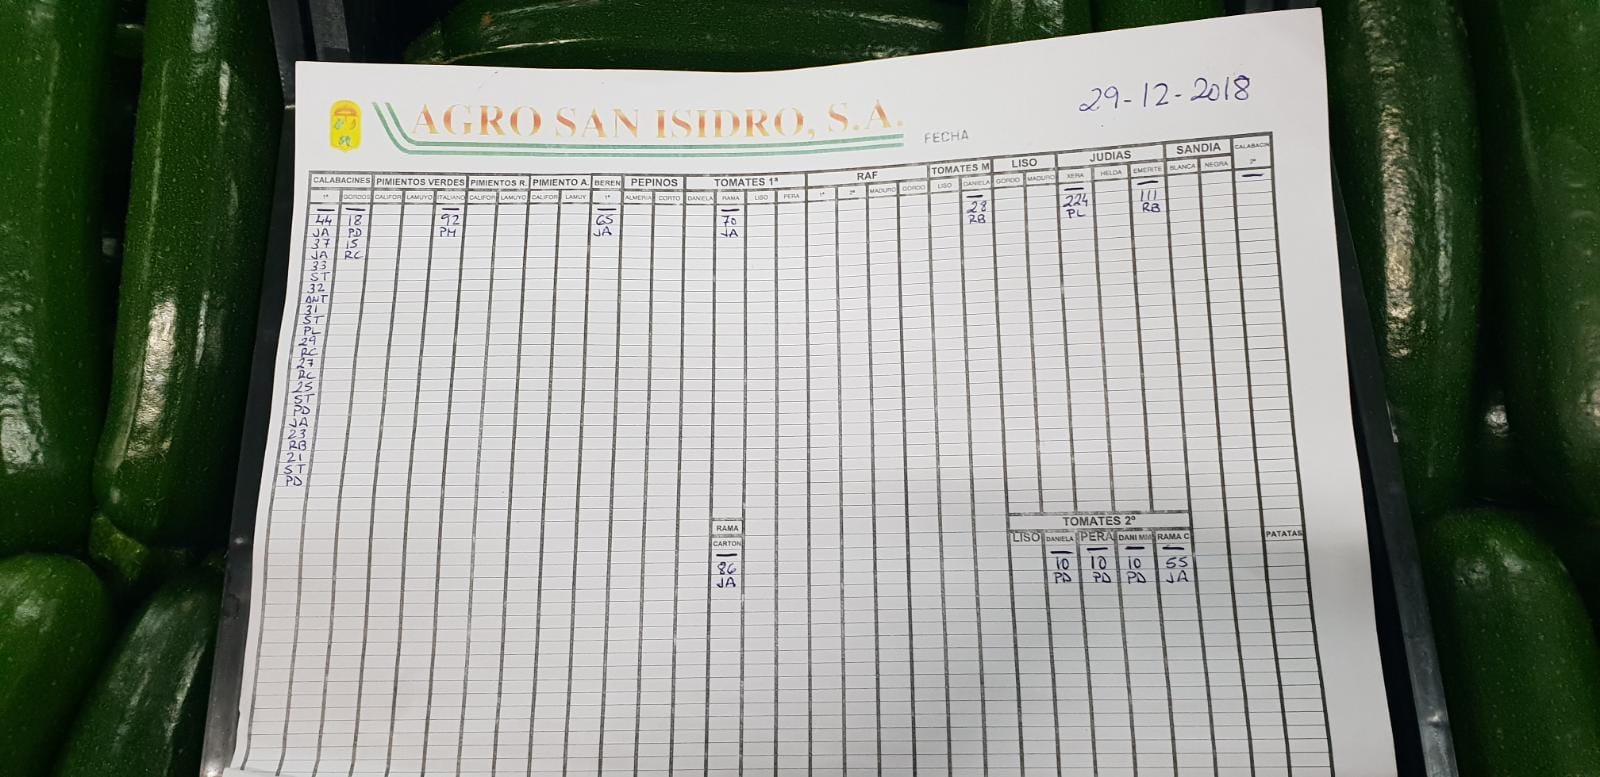 29-12-2018
AGRO SAN ISIDRO, S.A.
FECHA
CALABACINES PIMIENTOS VERDES PIMIENTOS R. PIMIENTO A. BEREN PEPINOS TOMATES 1ª RAF TOMATES M LISO JUDIAS SANDIA CALABACIN
1ª GORDOS CALIFOR LAMUYO ITALIANO CALIFOR LAMUYO CALIFOR LAMUY 1ª ALMERIA CORTO DANIELA RAMA LISO PERA 1ª 2ª MADURO GORDO LISO DANIELA GORDO MADURO XERA HELDA EMERITE BLANCA NEGRA 2ª
44 18 92 65 70 28 224 111
JA PD PM JA JA RB PL RB
37 15
JA RC
33
ST
32
ANT
31
ST
PL
29
RC
27
RC
25
ST
PD
JA
23
RB
21
ST
PD
RAMA
CARTON
86
JA
TOMATES 2ª
LISO DANIELA PERA DANI MM RAMA C PATATAS
10 10 10 55
PD PD PD JA